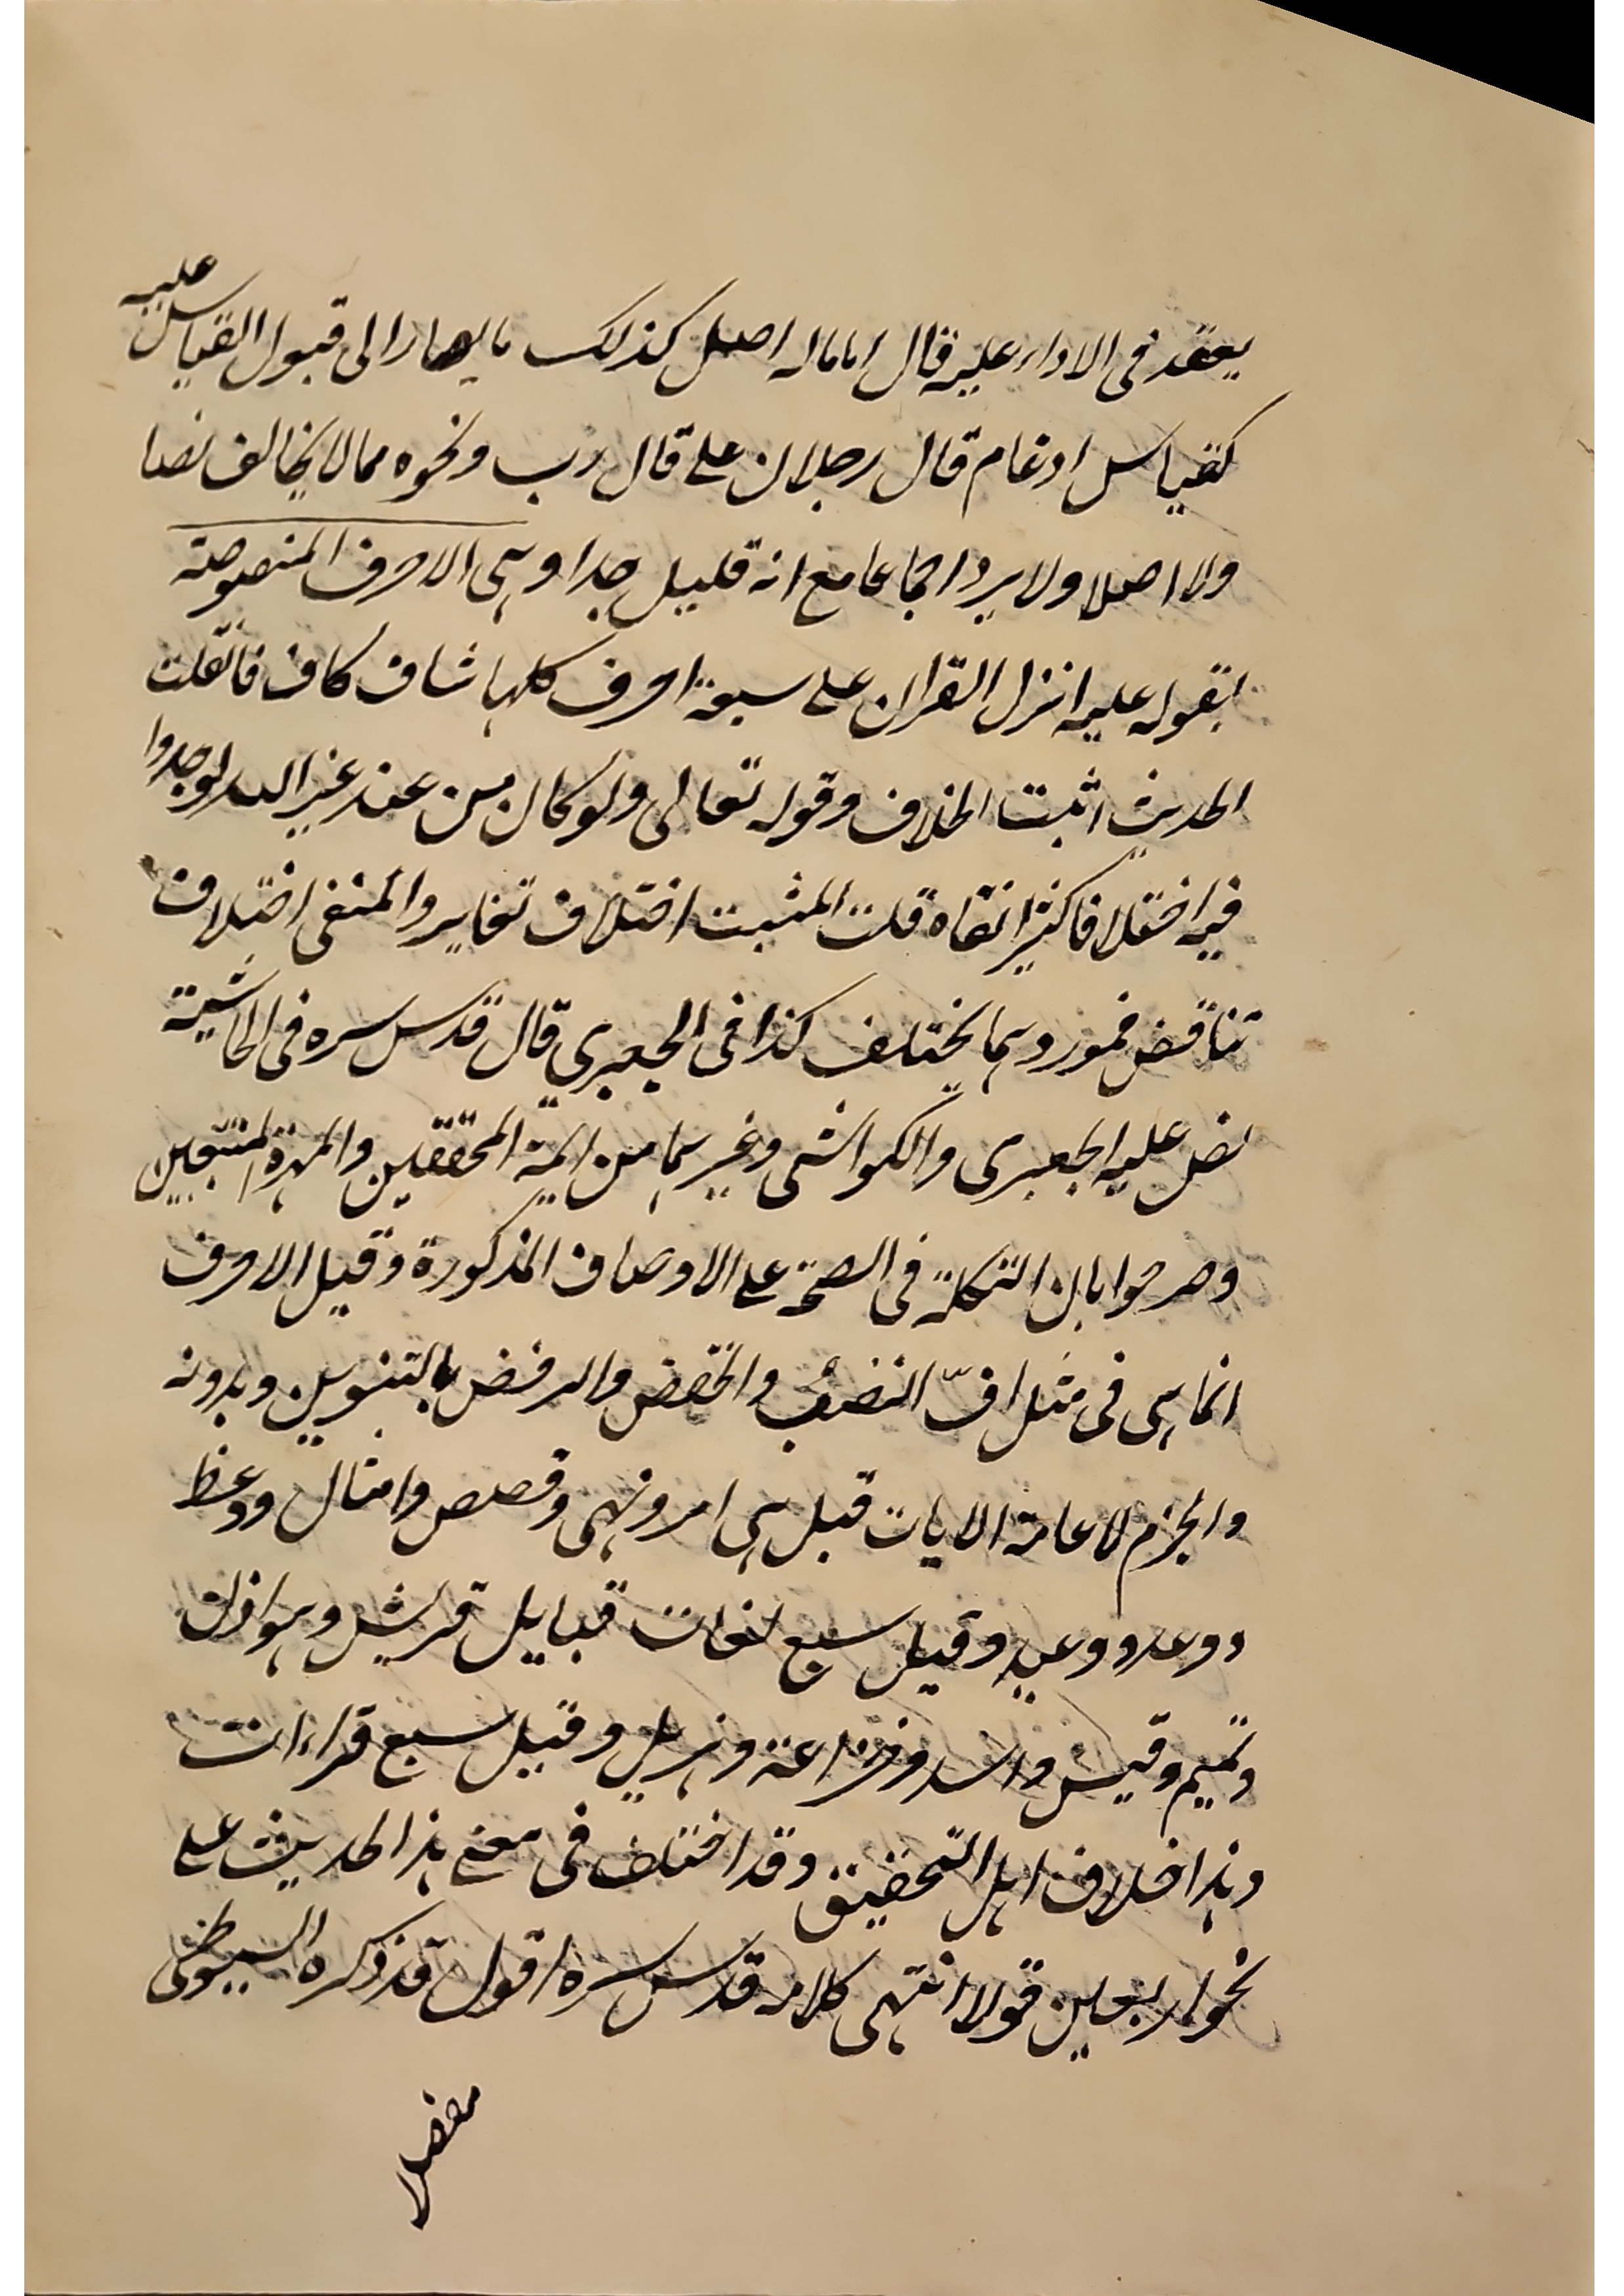 يعقد في الاداء عليه قال اما ماله اصل كذلك مما يصار الى قبول القياس عليه
كقياس ادغام قال رجلان على قال رب ونحوه مما لا يخالف نصا
ولا اصلا ولا يرد اجماعا مع انه قليل جدا وهى الاحرف المنصوصة
بقوله عليه انزل القران على سبعة احرف كلها شاف كاف فان قلت
الحديث اثبت الخلاف وقوله تعالى ولو كان من عند غير الله لوجدوا
فيه اختلافا كثيرا نفاه قلت المثبت اختلاف تغاير والمنفى اختلاف
تناقض فموردهما مختلف كذا فى الجعبري قال قدس سره فى الحاشية
نص عليه الجعبرى والكواشى وغيرهما من ايمة المحققين والمهرة المتتبعين
وصرحوا بان التكلة فى الصحة على الاوصاف المذكورة وقيل الاحرف
انما هى فى مثل افّ النصب والخفض والرفض بالتنوين وبدونه
والجزم لا عامة الايات قبل هى امر ونهى وقصص وامثال ووعظ
ووعد ووعيد وقيل سبع لغات قبايل قريش وهوازن
وتميم وقيس واسد وخزاعة وهزيل وقيل سبع قراءات
وهذا خلاف اهل التحقيق وقد اختلف فى معنى هذا الحديث على
نحو اربعين قولا انتهى كلامه قدس سره اقول قد ذكره السيوطى
مفصل